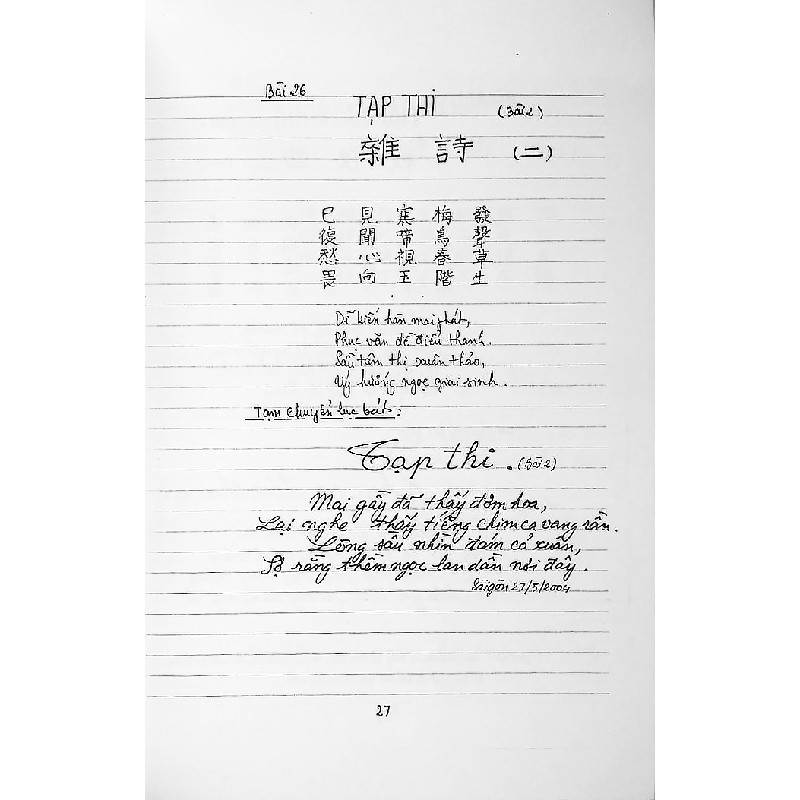 Bài 26
TẠP THI
(Bài 2)
雜 詩 (二)
已 見 寒 梅 發
復 聞 啼 鳥 聲
愁 心 視 春 草
畏 向 玉 階 生
Dĩ kiến hàn mai phát,
Phục văn đề điểu thanh.
Sầu tâm thị xuân thảo,
Uý hướng ngọc giai sinh.
Tạm chuyển lục bát:
Tạp thi. (Bài 2)
Mai gầy đã thấy đơm hoa,
Lại nghe thấy tiếng chim ca vang rần.
Lòng sầu nhìn đám cỏ xuân,
Sợ rằng thềm ngọc lan dần nơi đây.
Saigòn 27/5/2009
27